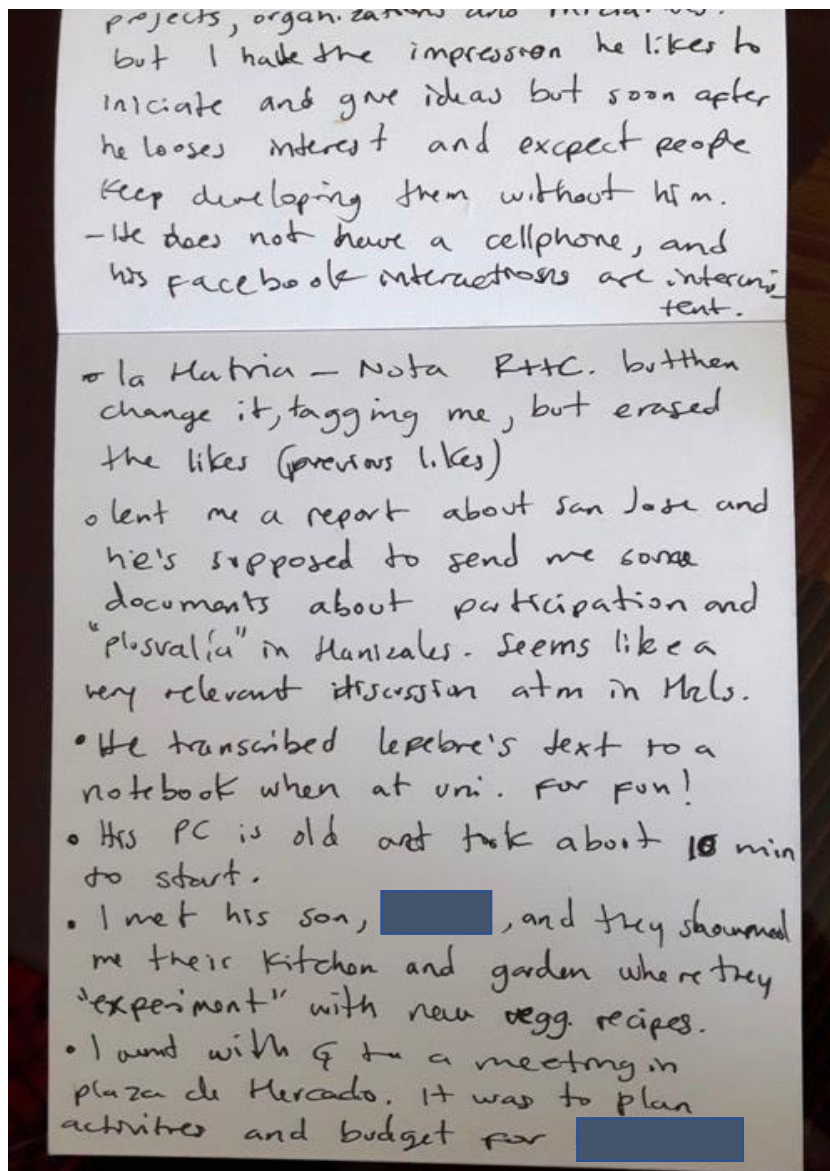 projects, organizations and
but I have the impression he likes to
iniciate and give ideas but soon after
he looses interest and excpect people
keep developing them without him.
- He does not have a cellphone, and
his Facebook interactions are intermi
tent.
la Hatria - Nota RttC. but then
change it, tagging me, but erased
the likes (previous likes)
o lent me a report about San Jose and
he's supposed to send me some
documents about participation and
"plusvalía" in Manizales. Seems like a
very relevant discussion atm in Mzls.
• He transcribed lefebre's text to a
notebook when at uni. For fun!
• His PC is old and took about 10 min
to start.
• I met his son, , and they showned
me their kitchen and garden where they
"experiment" with new vegg. recipes.
• I went with G to a meeting in
plaza de Mercado. It was to plan
activities and budget for